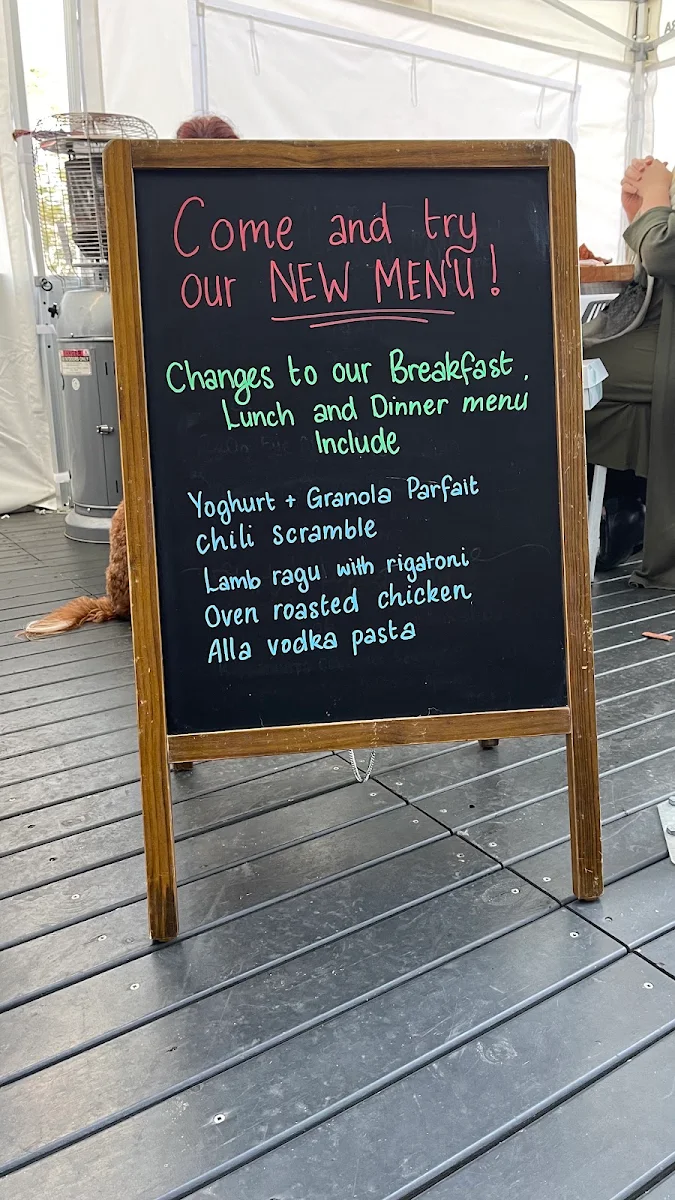 Come and try
our NEW MENU!
Changes to our Breakfast,
Lunch and Dinner menu
Include
Yoghurt + Granola Parfait
Chili Scramble
Lamb ragu with rigatoni
Oven roasted chicken
Alla vodka pasta